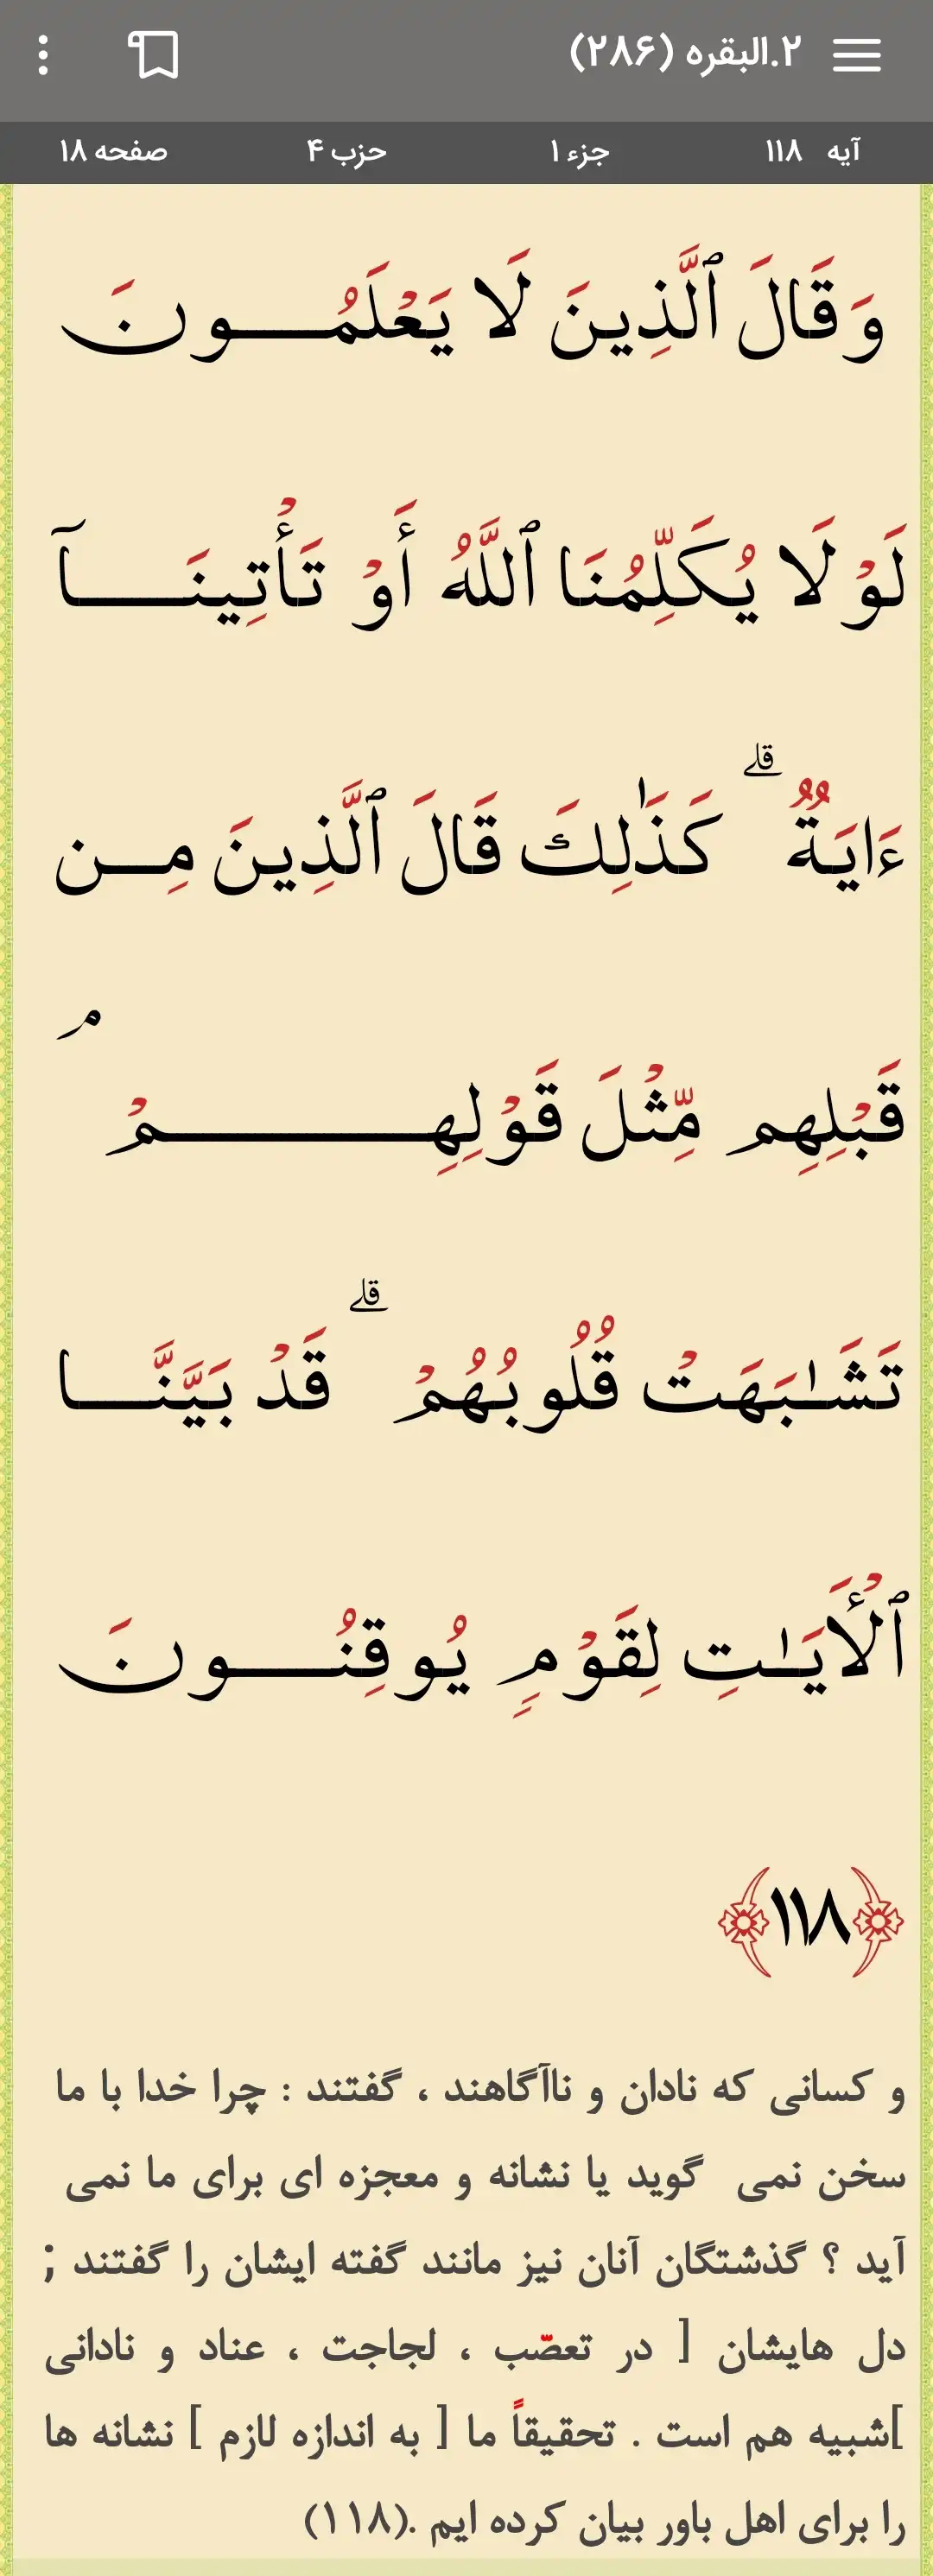 ۲.البقره (۲۸۶)
آیه ۱۱۸ جزء ۱ حزب ۴ صفحه ۱۸
وَقَالَ ٱلَّذِينَ لَا يَعْلَمُـــونَ
لَوْلَا يُكَلِّمُنَا ٱللَّهُ أَوْ تَأْتِينَـــآ
ءَايَةٌ ۗ كَذَٰلِكَ قَالَ ٱلَّذِينَ مِـن
قَبْلِهِم مِّثْلَ قَوْلِهِـــــمْ ۘ
تَشَـٰبَهَتْ قُلُوبُهُمْ ۗ قَدْ بَيَّنَّـــا
ٱلْأَيَـٰتِ لِقَوْمٍ يُوقِنُـــونَ
﴿۱۱۸﴾
و کسانی که نادان و ناآگاهند ، گفتند : چرا خدا با ما
سخن نمی گوید یا نشانه و معجزه ای برای ما نمی
آید ؟ گذشتگان آنان نیز مانند گفته ایشان را گفتند ;
دل هایشان [ در تعصّب ، لجاجت ، عناد و نادانی
]شبیه هم است . تحقیقاً ما [ به اندازه لازم ] نشانه ها
را برای اهل باور بیان کرده ایم .(۱۱۸)